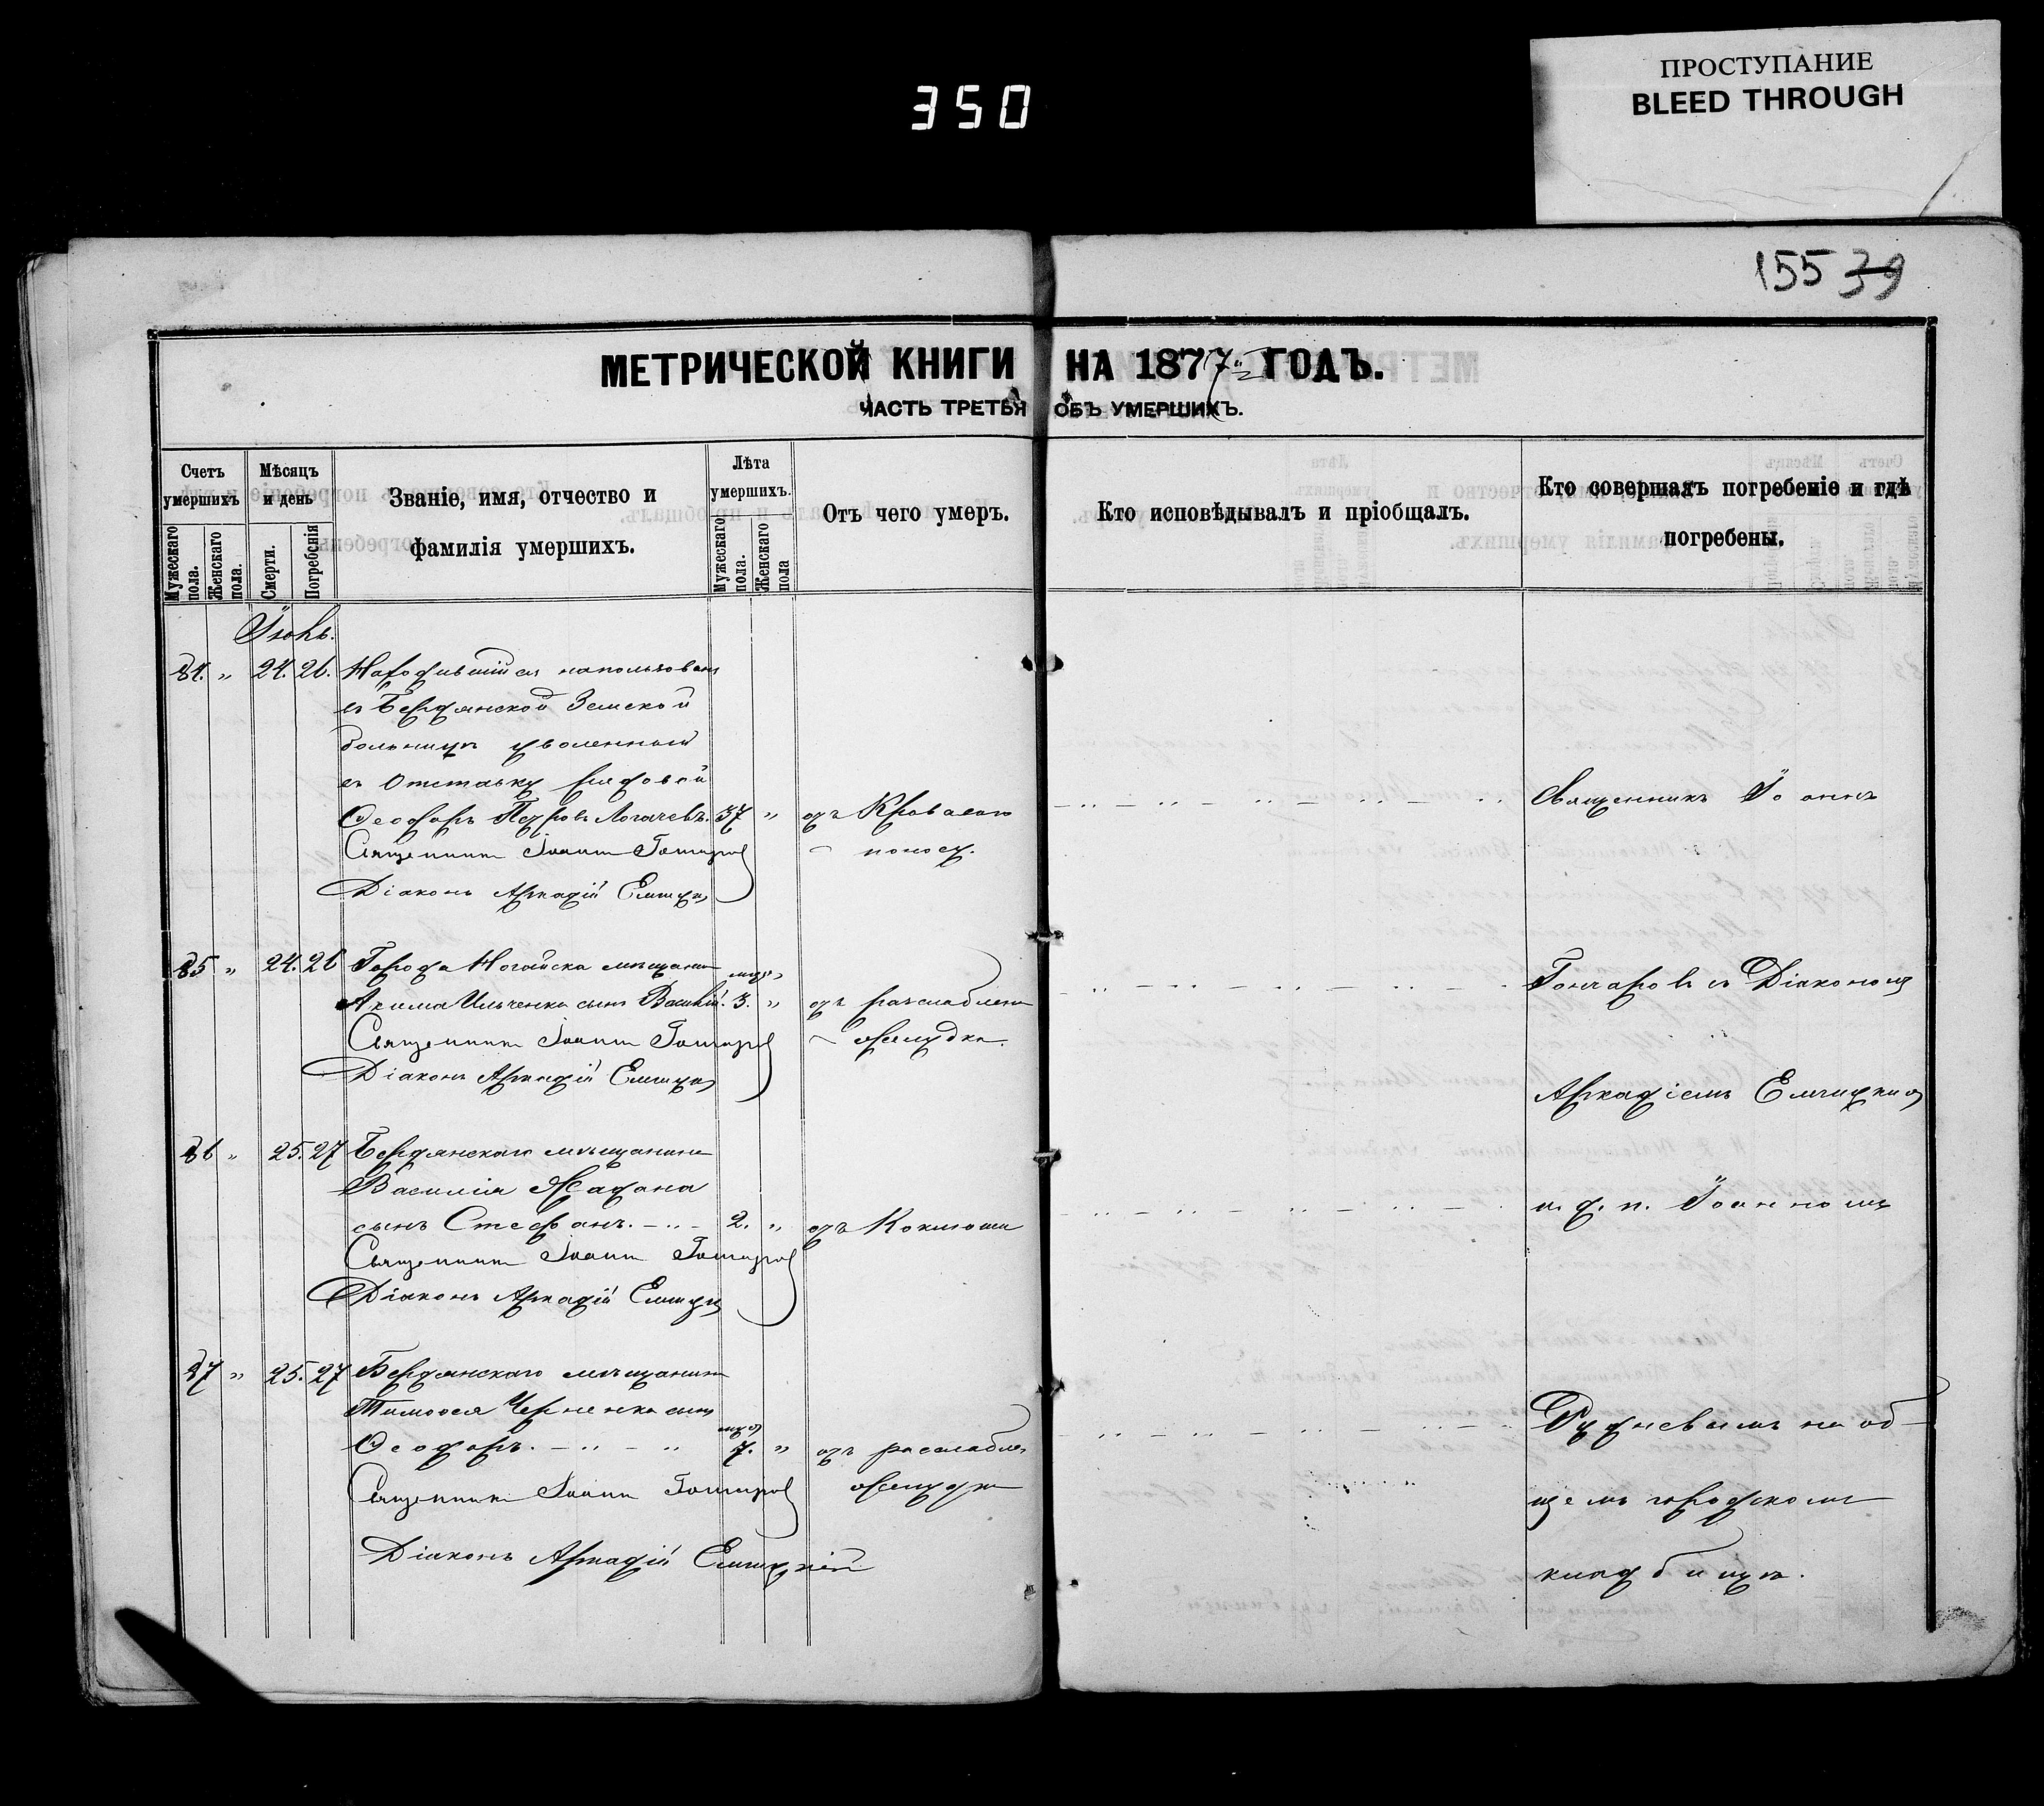 350
ПРОСТУПАНИЕ
BLEED THROUGH
155 39
МЕТРИЧЕСКОЙ КНИГИ НА 1877й ГОДЪ.
ЧАСТЬ ТРЕТЬЯ ОБЪ УМЕРШИХЪ.
Счетъ умершихъ
Мужескаго пола.
Женскаго пола.
Мѣсяцъ и день
Смерти.
Погребенія
Званіе, имя, отчество и фамилія умершихъ.
Лѣта умершихъ.
Мужескаго пола.
Женскаго пола
Отъ чего умеръ.
Кто исповѣдывалъ и пріобщалъ.
Кто совершалъ погребеніе и гдѣ погребены.
Іюнь.
84. " 24. 26. Находившійся на пользован
въ Бердянской Земской
больницѣ уволенный
въ Отставку рядовой
Ѳеодоръ Петровъ Логачевъ. 37 " отъ Кроваваго
поносу.
Священникъ Іоаннъ Гончаровъ
Діаконъ Аркадій Емчицкі
85 " 24. 26 Города Ногайска мѣщанин
Акима Ильченка сынъ Василій. 3. " отъ разслаблен
желудка.
Священникъ Іоаннъ Гончаровъ
Діаконъ Аркадій Емчицкі
86 " 25. 27 Бердянскаго мѣщанина
Василія Жадана
сынъ Стефанъ. 2. " отъ Коклюша
Священникъ Іоаннъ Гончаровъ
Діаконъ Аркадій Емчицкі
87 " 25. 27 Бердянскаго мѣщанина
Тимоѳея Черненка сынъ
Ѳеодоръ. 7. " отъ разслаблен
желудка
Священникъ Іоаннъ Гончаровъ
Діаконъ Аркадій Емчицкій
Священникъ Іоаннъ
Гончаровъ съ Діакономъ
Аркадіемъ Емчицкимъ
и. д. п. Іоанномъ
Рудневымъ на об-
щемъ городскомъ
кладбищѣ.